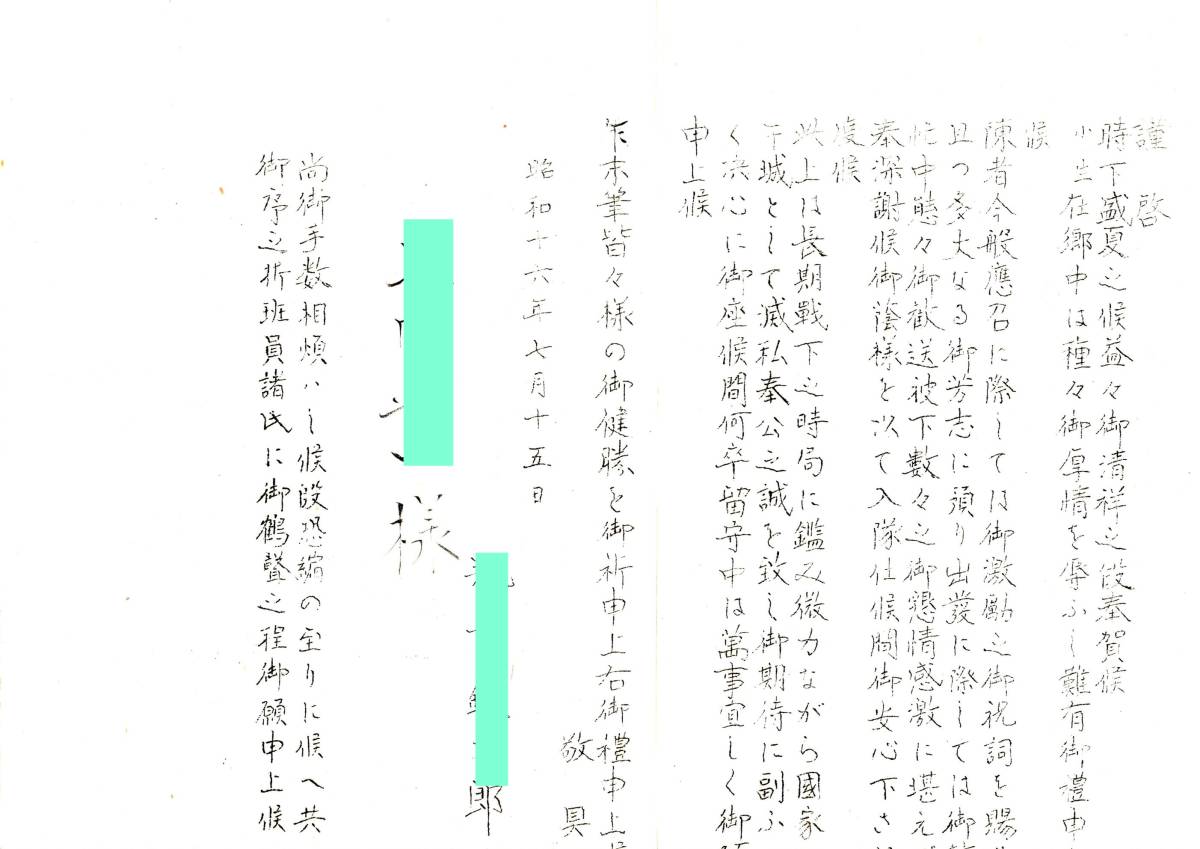 謹啓
時下盛夏之候益々御清祥之段奉賀候
小生在郷中は種々御厚情を辱ふし難有御禮申
候
陳者今般應召に際しては御激勵之御祝詞を賜
且つ多大なる御芳志に預り出發に際しては御
忙中態々御歓送被下數々之御懇情感激に堪え
奉深謝候御蔭様を以て入隊仕候間御安心下さ
度候
此上は長期戰下之時局に鑑み微力ながら國家
干城として滅私奉公之誠を致し御期待に副ふ
く决心に御座候間何卒留守中は萬事宜しく御
申上候
乍末筆皆々様の御健勝を御祈申上右御禮申上
敬具
昭和十六年七月十五日
郎
様
尚御手数相煩ハし候段恐縮の至りに候へ共
御序之折班員諸氏に御鶴聲之程御願申上候